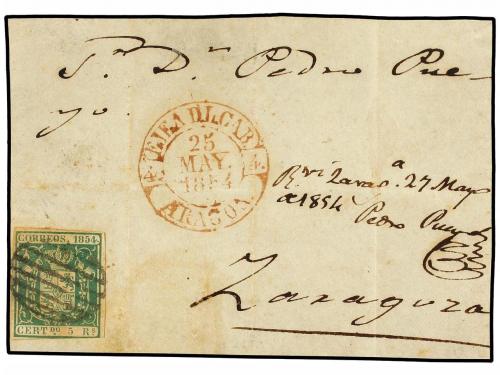 Sr. Dn. Pedro Pue-
yo.
EJEA D L CAB
25
MAY.
1854
ARAGON.
Rvi Zaraa. 27 Mayo
de 1854 Pedro Puey
Zaragoza
CORREOS. 1854.
CERTDO. 5 Rs.